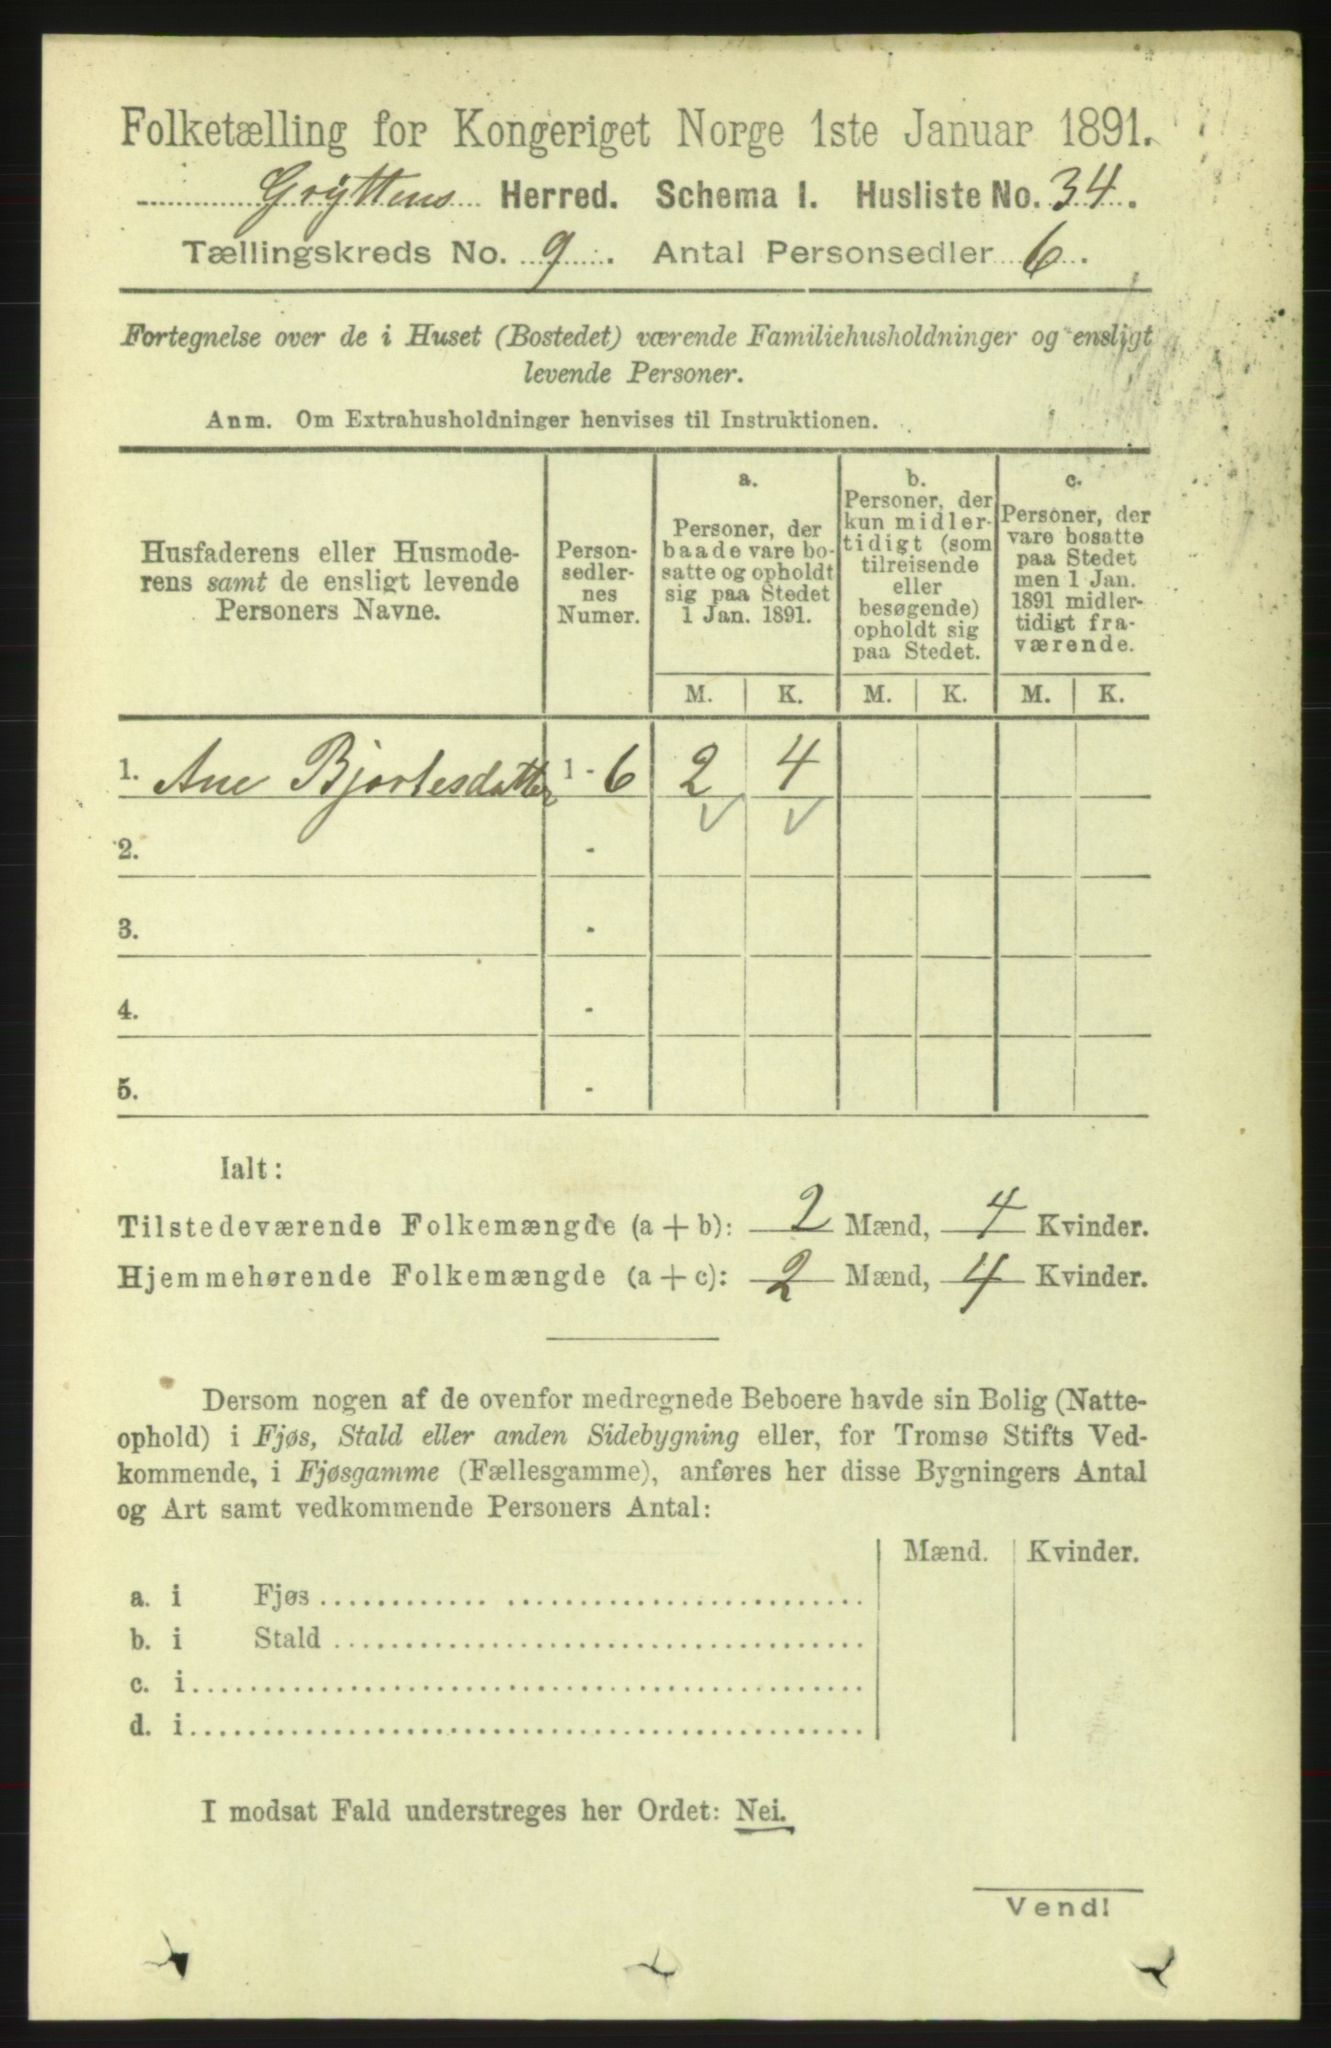 Folketælling for Kongeriget Norge 1ste Januar 1891.
Gryttens Herred. Schema I. Husliste No. 34.
Tællingskreds No. 9. Antal Personsedler 6.
Fortegnelse over de i Huset (Bostedet) værende Familiehusholdninger og ensligt
levende Personer.
Anm. Om Extrahusholdninger henvises til Instruktionen.
Husfaderens eller Husmode-
rens samt de ensligt levende
Personers Navne.
Person-
sedler-
nes
Numer.
a.
Personer, der
baade vare bo-
satte og opholdt
sig paa Stedet
1 Jan. 1891.
b.
Personer, der
kun midler-
tidigt (som
tilreisende
eller
besøgende)
opholdt sig
paa Stedet.
c.
Personer, der
vare bosatte
paa Stedet
men 1 Jan.
1891 midler-
tidigt fra-
værende.
M. K. M. K. M. K.
1. Ane Bjortesdatter 1 - 6 2 4
2. -
3. -
4. -
5. -
Ialt:
Tilstedeværende Folkemængde (a + b): 2 Mænd, 4 Kvinder.
Hjemmehørende Folkemængde (a + c): 2 Mænd, 4 Kvinder.
Dersom nogen af de ovenfor medregnede Beboere havde sin Bolig (Natte-
ophold) i Fjøs, Stald eller anden Sidebygning eller, for Tromsø Stifts Ved-
kommende, i Fjøsgamme (Fællesgamme), anføres her disse Bygningers Antal
og Art samt vedkommende Personers Antal:
Mænd. Kvinder.
a. i Fjøs
b. i Stald
c. i
d. i
I modsat Fald understreges her Ordet: Nei.
Vend!